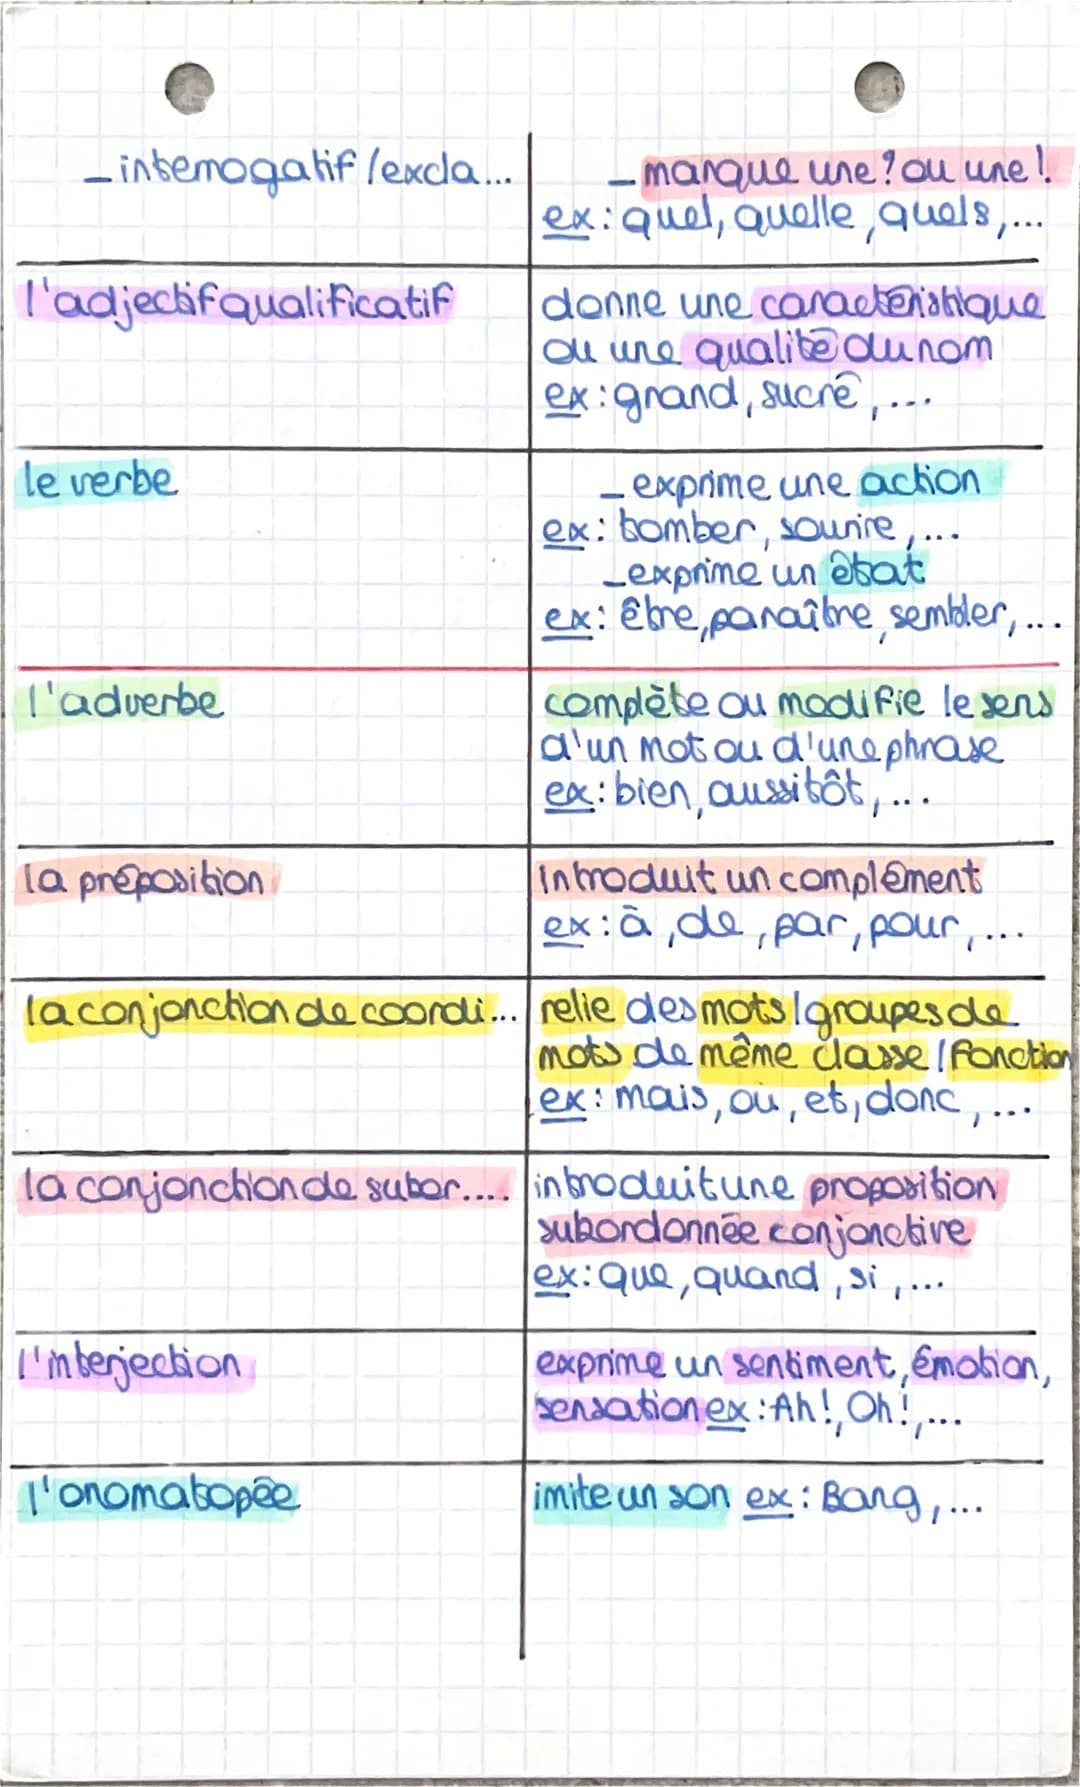 - interrogatif/excla...
- marque une ? ou une !
ex : quel, quelle, quels, ...
l'adjectif qualificatif
donne une caractéristique
ou une qualité du nom
ex : grand, sucré, ...
le verbe
- exprime une action
ex : tomber, sourire, ...
- exprime un état
ex : être, paraître, sembler, ...
l'adverbe
complète ou modifie le sens
d'un mot ou d'une phrase
ex : bien, aussitôt, ...
la préposition
introduit un complément
ex : à, de, par, pour, ...
la conjonction de coordi...
relie des mots/groupes de
mots de même classe/fonction
ex : mais, ou, et, donc, ...
la conjonction de subor....
introduit une proposition
subordonnée conjonctive
ex : que, quand, si, ...
l'interjection
exprime un sentiment, émotion,
sensation ex : Ah!, Oh!, ...
l'onomatopée
imite un son ex : Bang, ...